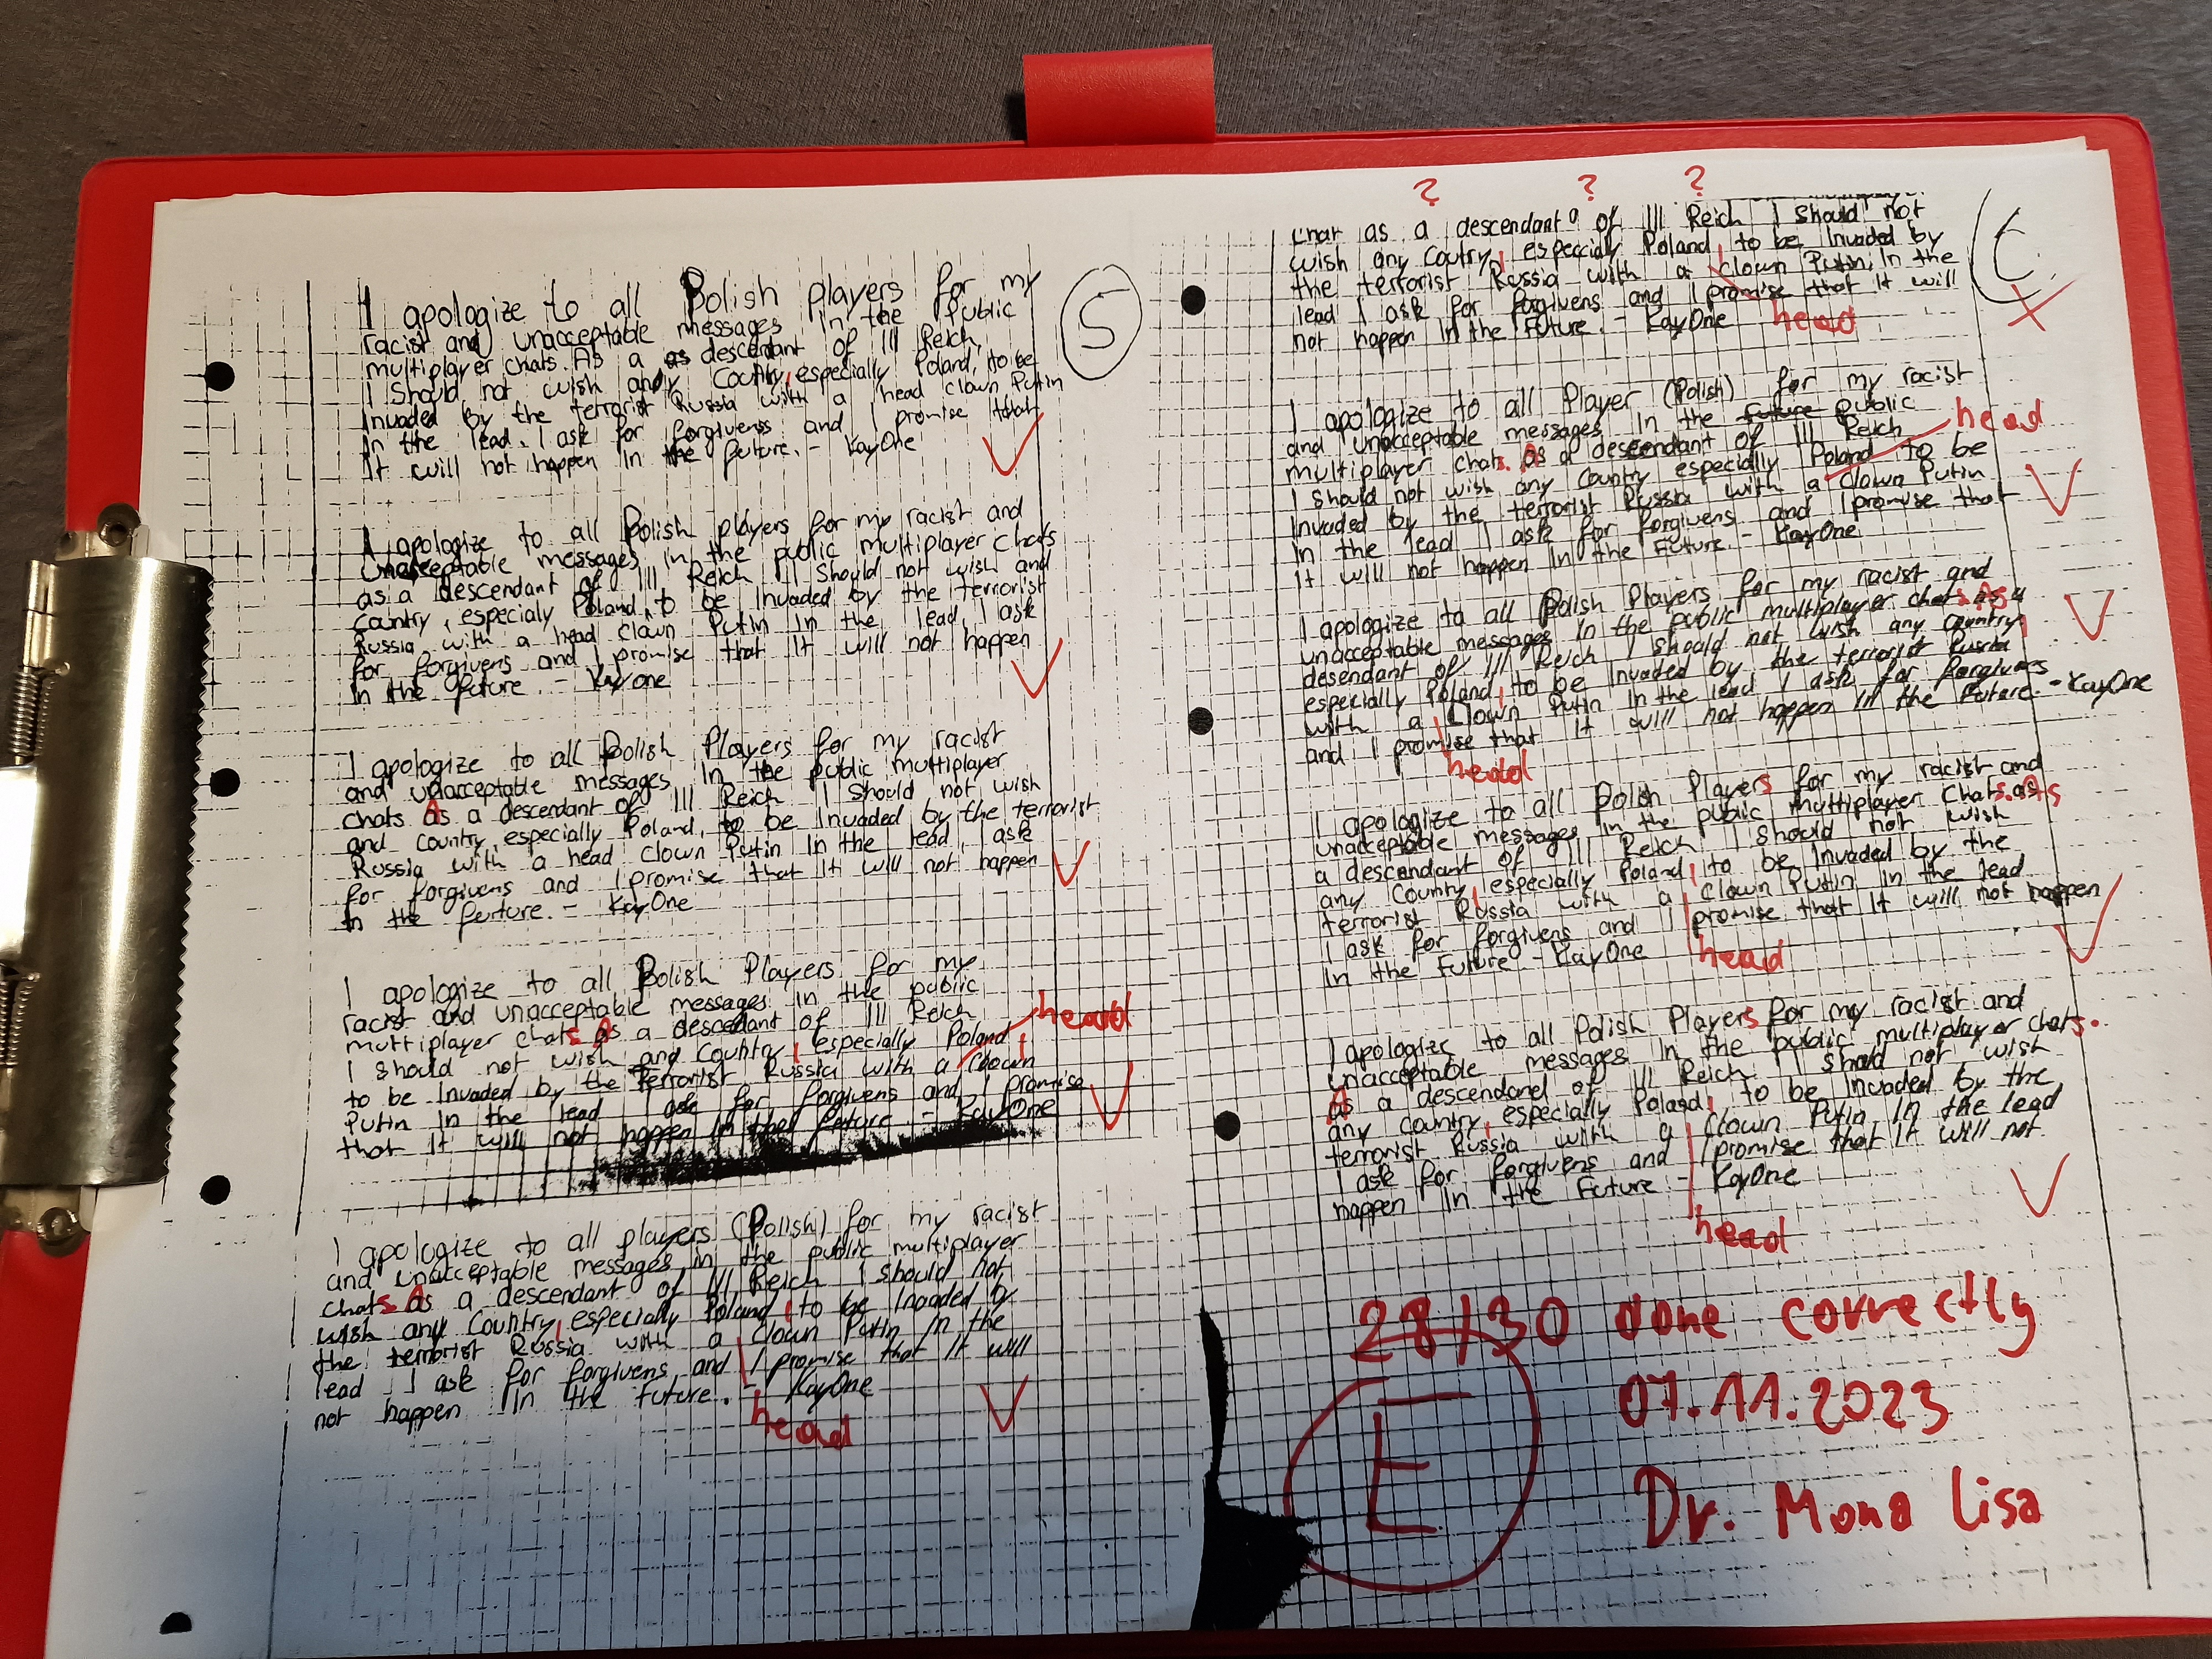 I apologize to all Polish players for my
racist and unacceptable messages in the Public
multiplayer chars. As a as descendant of III Reich,
I Should not wish any Coutry, especially Poland, to be
Invaded by the terrorist Russia with a head clown Putin
In the lead. I ask for forgivens and I promise that
It will not happen In the future. - KayOne
5
I apologize to all Polish players for my racist and
Unacceptable messages in the public multiplayer chats
as a descendant of III Reich I Should not wish and
Country, especialy Poland, to be Invaded by the terrorist
Russia with a head clown Putin In the lead, I ask
for forgivens and I promise that It will not happen
In the future. - Kayone
I apologize to all Polish Players for my racist
and unacceptable messages In the public multiplayer
chats As a descendant of III Reich I Should not wish
and Country, especially Poland, to be Invaded by the terrorist
Russia with a head clown Putin In the lead, I ask
for forgivens and I promise that It will not happen
In the furture. - KayOne
I apologize to all Polish Players for my
racist and unacceptable messages In the public
multiplayer chats As a descedant of III Reich
I should not wish and Country, especially Poland,
heard
to be Invaded by the terrorist Russia with a Clown
Putin In the lead I ask for forgivens and I promise
that It will not happen In the future - KayOne
I apologize to all players (Polish) for my racist
and unacceptable messages in the public multiplayer
chats As a descendant of III Reich I should not
wish any Country, especially Poland, to be Invaded by
the terrorist Russia with a Clown Putin In the
lead I ask for forgivens and I promise that It will
not happen In the future. - KayOne
head
? ? ?
chat as a descendant of III Reich I Should not
wish any Coutry, especially Poland, to be Invaded by
the terrorist Russia with a Clown Putin In the
lead I ask for forgivens and I promise that It will
not happen In the Future. - KayOne
head
I apologize to all Player (Polish) for my racist
and unacceptable messages In the future public
multiplayer chats. As a descendant of III Reich
head
I should not wish any Country especially Poland to be
Invaded by the terrorist Russia with a Clown Putin
In the lead I ask for forgivens and I promise that
It will not happen In the Future. - KayOne
I apologize to all Polish Players for my racist and
unacceptable messages In the public multiplayer chats. As a
desendant of III Reich I should not wish any country,
especially Poland, to be Invaded by the terrorist Russia
with a Clown Putin In the lead I ask for forgivens
and I promise that It will not happen In the Future. - KayOne
head
I apologize to all Polish Players for my racist and
unacceptable messages In the public multiplayer Chats. As
a descendant of III Reich I should not wish
any County, especially Poland, to be Invaded by the
terrorist Russia with a Clown Putin In the lead
I ask for forgivens and I promise that It will not happen
In the Future - KayOne
head
I apologize to all Polish Players for my racist and
unacceptable messages In the public multiplayer chats.
As a descendand of III Reich I should not wish
any country, especially Poland, to be Invaded by the
terrorist Russia with a Clown Putin In the lead
I ask for forgivens and I promise that It will not
happen In the Future - KayOne
head
28/30 done correctly
E
07.11.2023
Dr. Mona Lisa